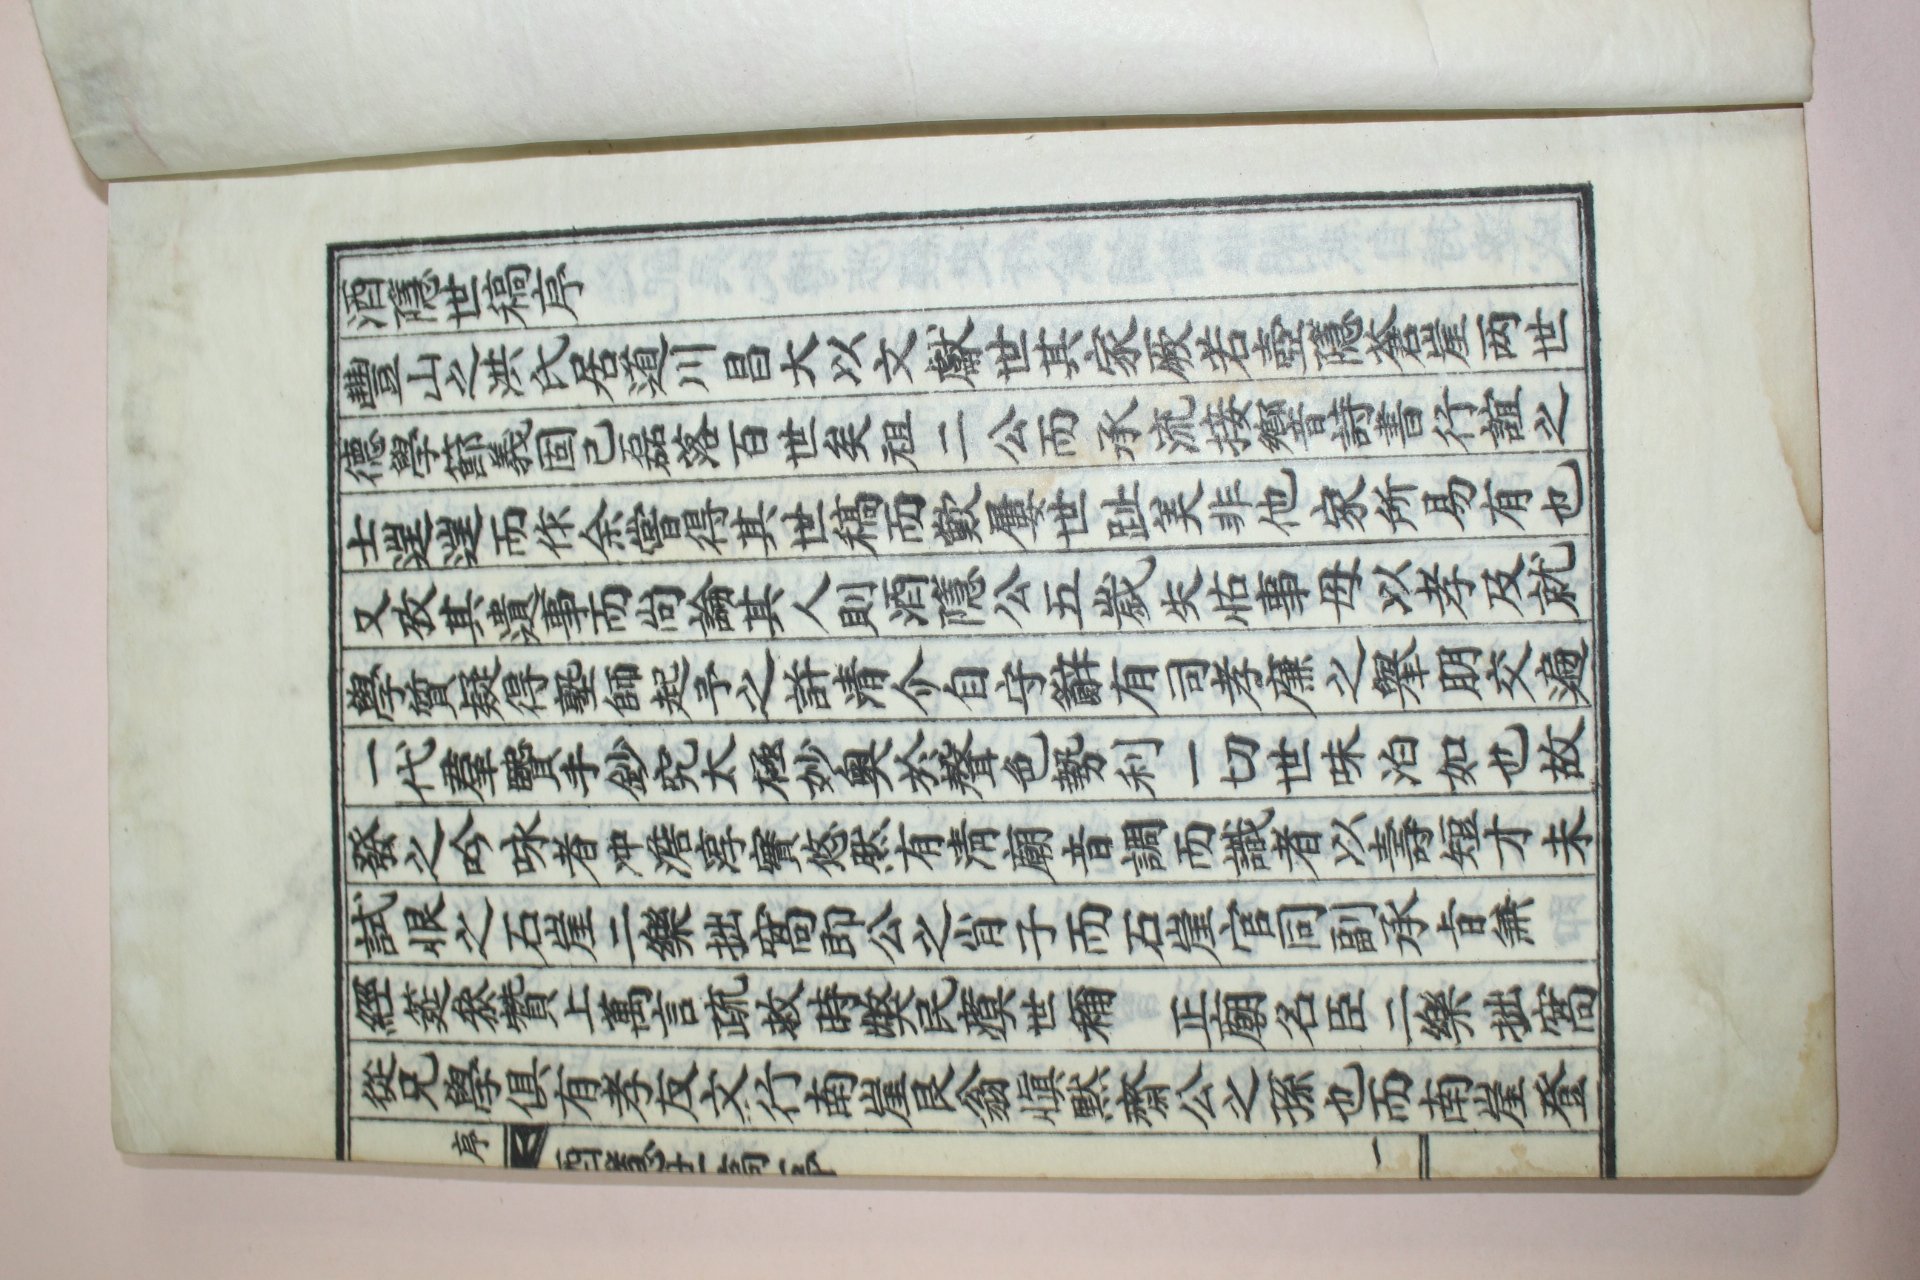 酒隱世稿序
豐山之洪氏居道川昌大以文獻世其家厥若壺隱蒼崖两世
德學節義固已磊落百世矣祖二公而承流接響詩書行誼之
士逞逞而作余嘗得其世稿而歎屢世趾美非他家所易有也
又攷其遺事而尙論其人則酒隱公五歲失怙事母以孝及就
學質疑得塾師起予之許清介自守辭有司孝廉之擧朋交遍
一代羣賢手鈔究太極妙奥於聲色勢利一切世味泊如也故
發之吟咏者冲澹淳實悠然有清廟音調而識者以壽短才未
試恨之石崖二樂拙窩即公之肖子而石崖官同副承旨兼
經筵叅贊上萬言疏救時獘民瘼世稱　正廟名臣二樂拙窩
從兄學俱有孝友文行南崖艮翁愼默齋公之孫也而南崖登
序
酒隱世稿序
一